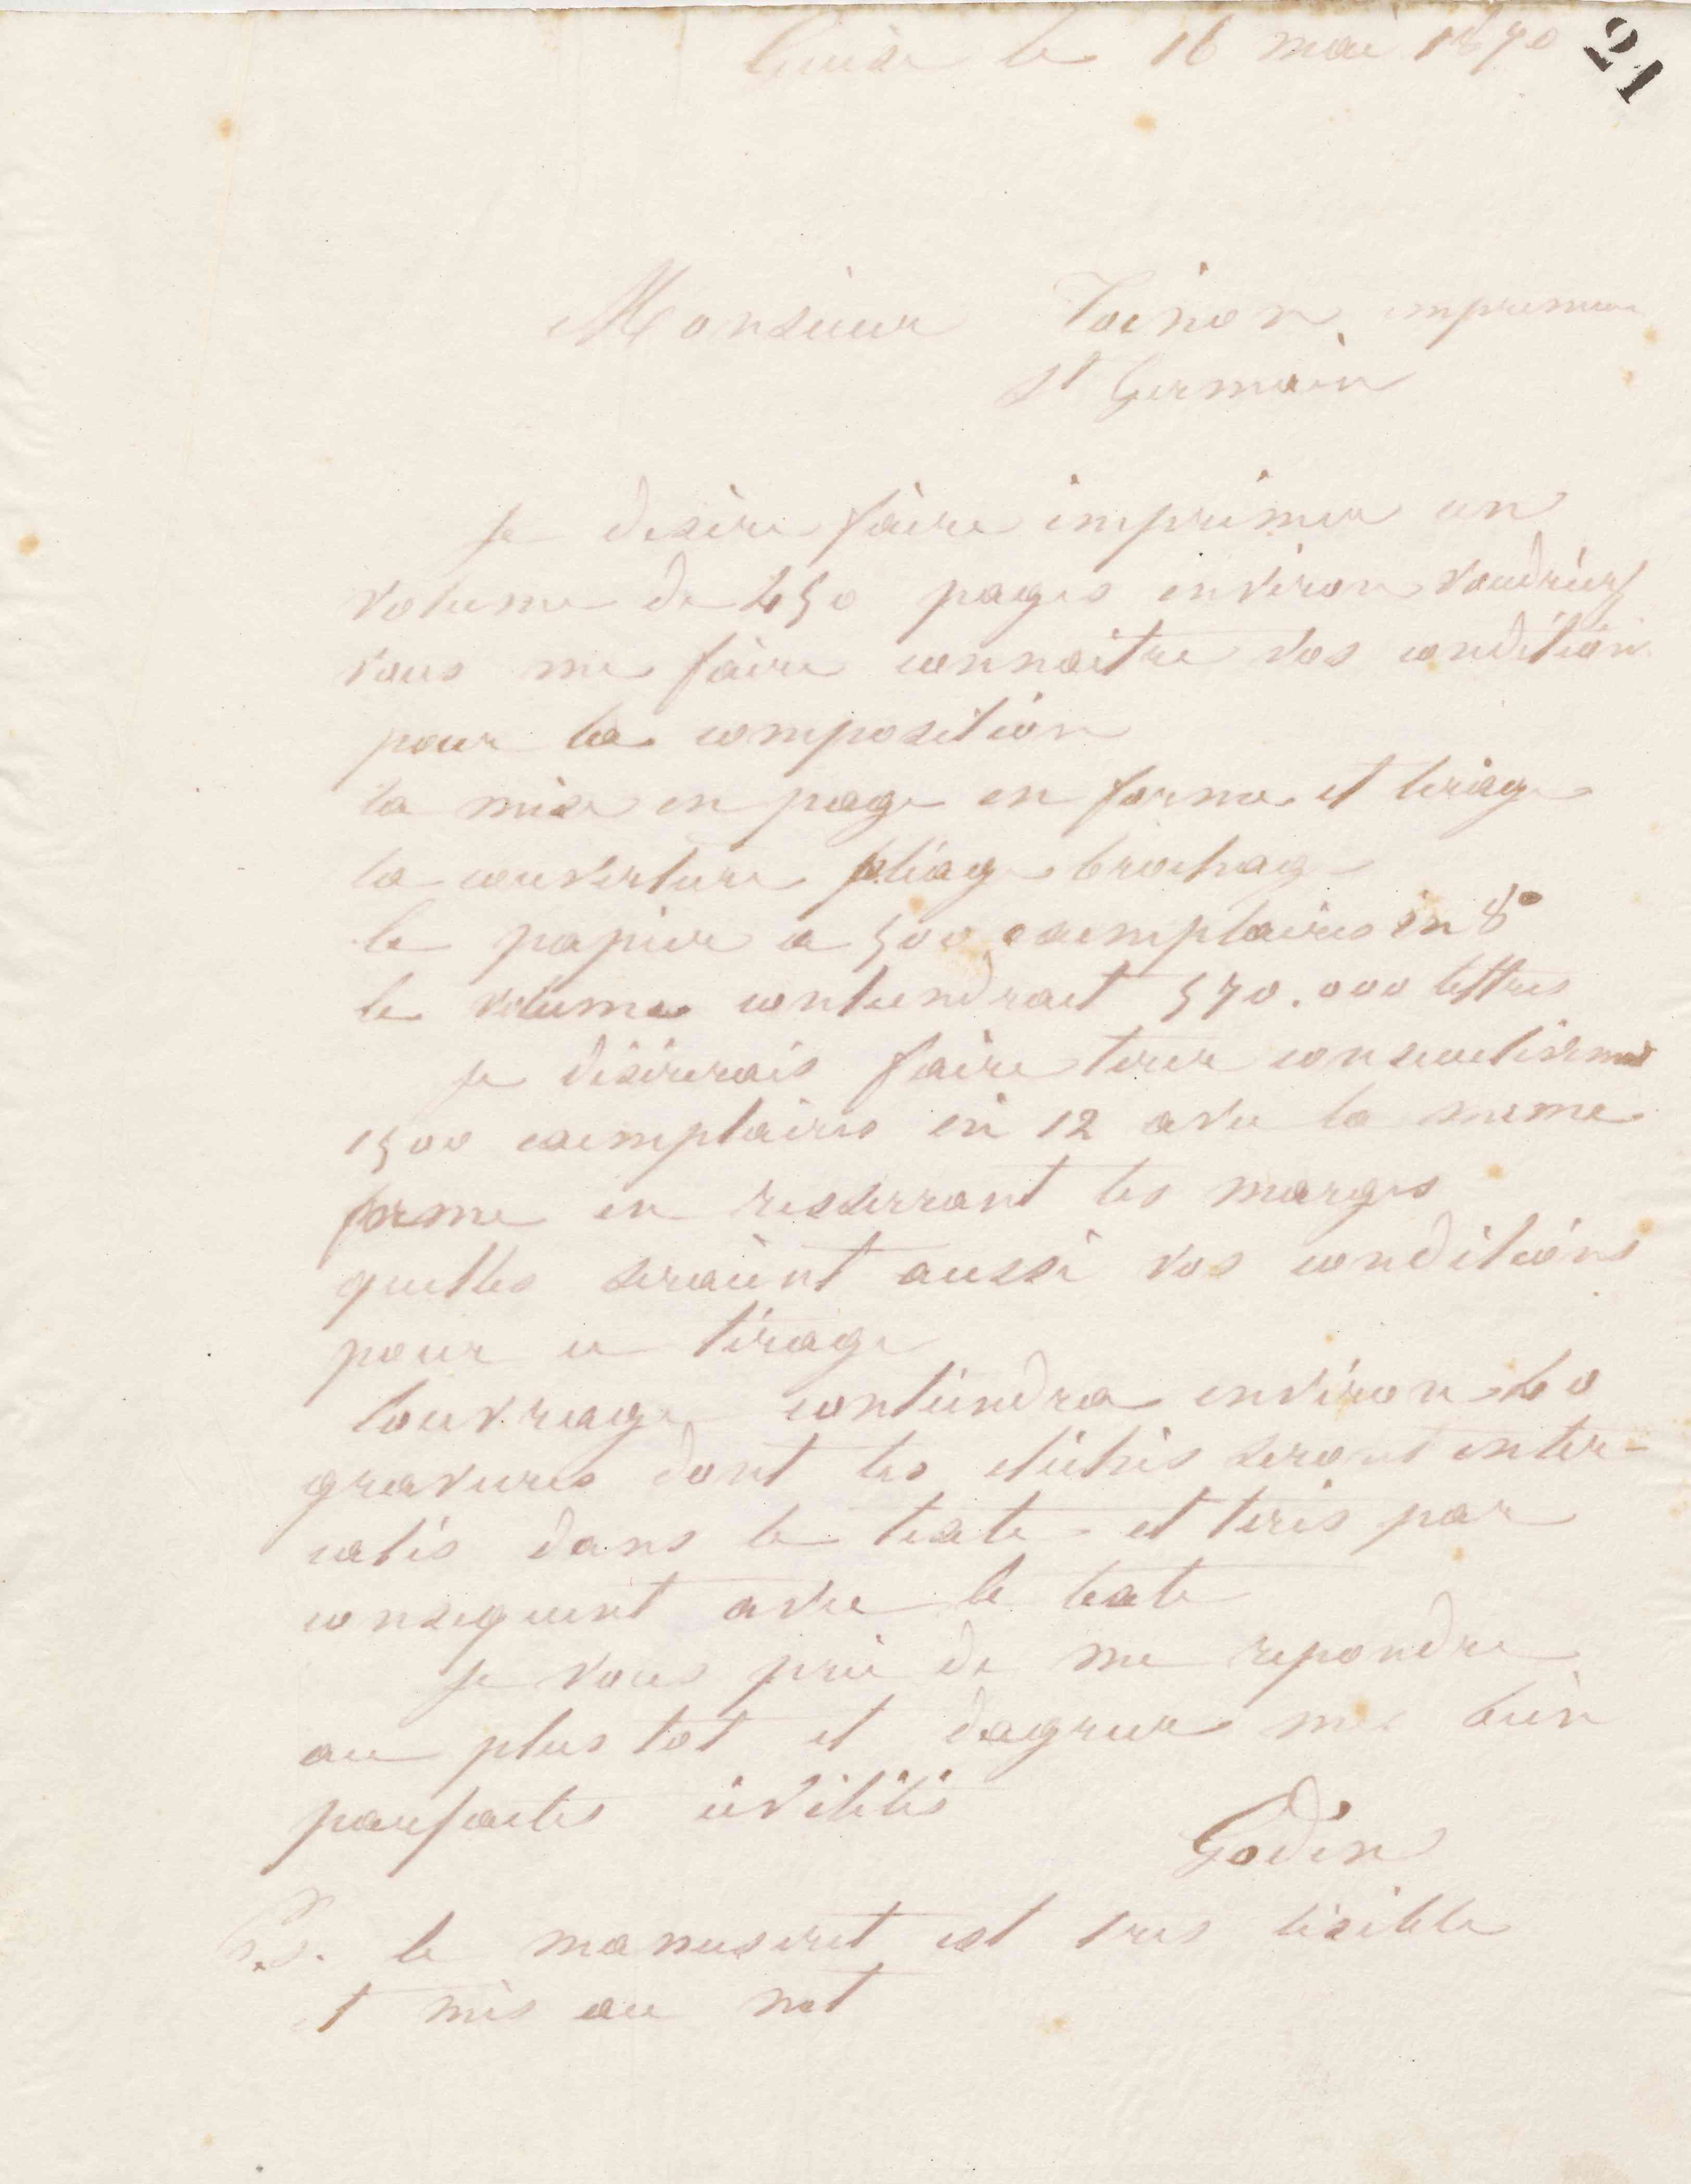 21
Guise le 16 mai 1870
Monsieur Toinon imprimeur
St Germain
Je desire faire imprimer un
volume de 450 pages environ voudriez
vous me faire connaitre vos condition
pour la composition
la mise en page en forme et tirage
la couverture pliage brochage
le papier a 500 exemplaires in 8°
le volume contiendrait 570.000 lettres
je désirerais faire tirer consecutivement
1500 exemplaires in 12 avec la meme
forme en resserrant les marges
quelles seraient aussi vos conditions
pour ce tirage
louvrage contiendra environ 40
gravures dont les clichés seront inter-
calés dans le texte et tirés par
consequent avec le texte
Je vous prie de me repondre
au plus tot et dagreer mes bien
parfaites civilités
Godin
P.S. le manuscrit est tres lisible
et mis au net